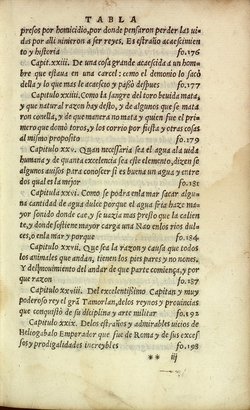 TABLA
presos por homicidio, por donde pensaron perder las ui
das por alli uinieron a ser reyes. Es estraño acaescimien
to y historia fo.176
Capit.xxiii. De una cosa grande acaescida a un hom
bre que estaua en una carcel: como el demonio lo sacò
della y lo que mas le acaescio y passò despues
fo.177
Capitulo xxiiii. Como la sangre del toro beuida mata,
y que natural razon hay desto, y de algunos que se mata
ron conella, y de que manera no mata y quien fue el pri
mero que domò toros, y los corrio por fiesta y otras cosas
al mismo proposito fo.179
Capitulo xxv. Quan necessaria sea el agua ala uida
humana y de quanta excelencia sea este elemento, dizen se
algunos auisos para conoscer si es buena un agua y entre
dos qual es la mejor fo.181
Capitulo xxvi. Como se podra enla mar sacar algu
na cantidad de agua dulce porque el agua fria haze ma
yor sonido donde cae, y se uazia mas presto que la calien
te, y donde sostiene mayor carga una Nao enlos rios dul
ces, o enla mar y porque fo.184.
Capitulo xxvii. Que sea la razon y causa que todos
los animales que andan, tienen los pies pares y no nones,
Y del mouimiento del andar de que parte comiença, y por
que razon fo.187
Capitulo xxviii. Del excelentissimo Capitan y muy
poderoso rey el grã Tamorlan, delos reynos y prouincias
que conquistò de su diciplina y arte militar fo.192
Capitulo xxix. Delos estraños y admirables uicios de
Heliogabalo Emperador que fue de Roma y de sus exces
sos y prodigalidades increybles fo.198
** iij